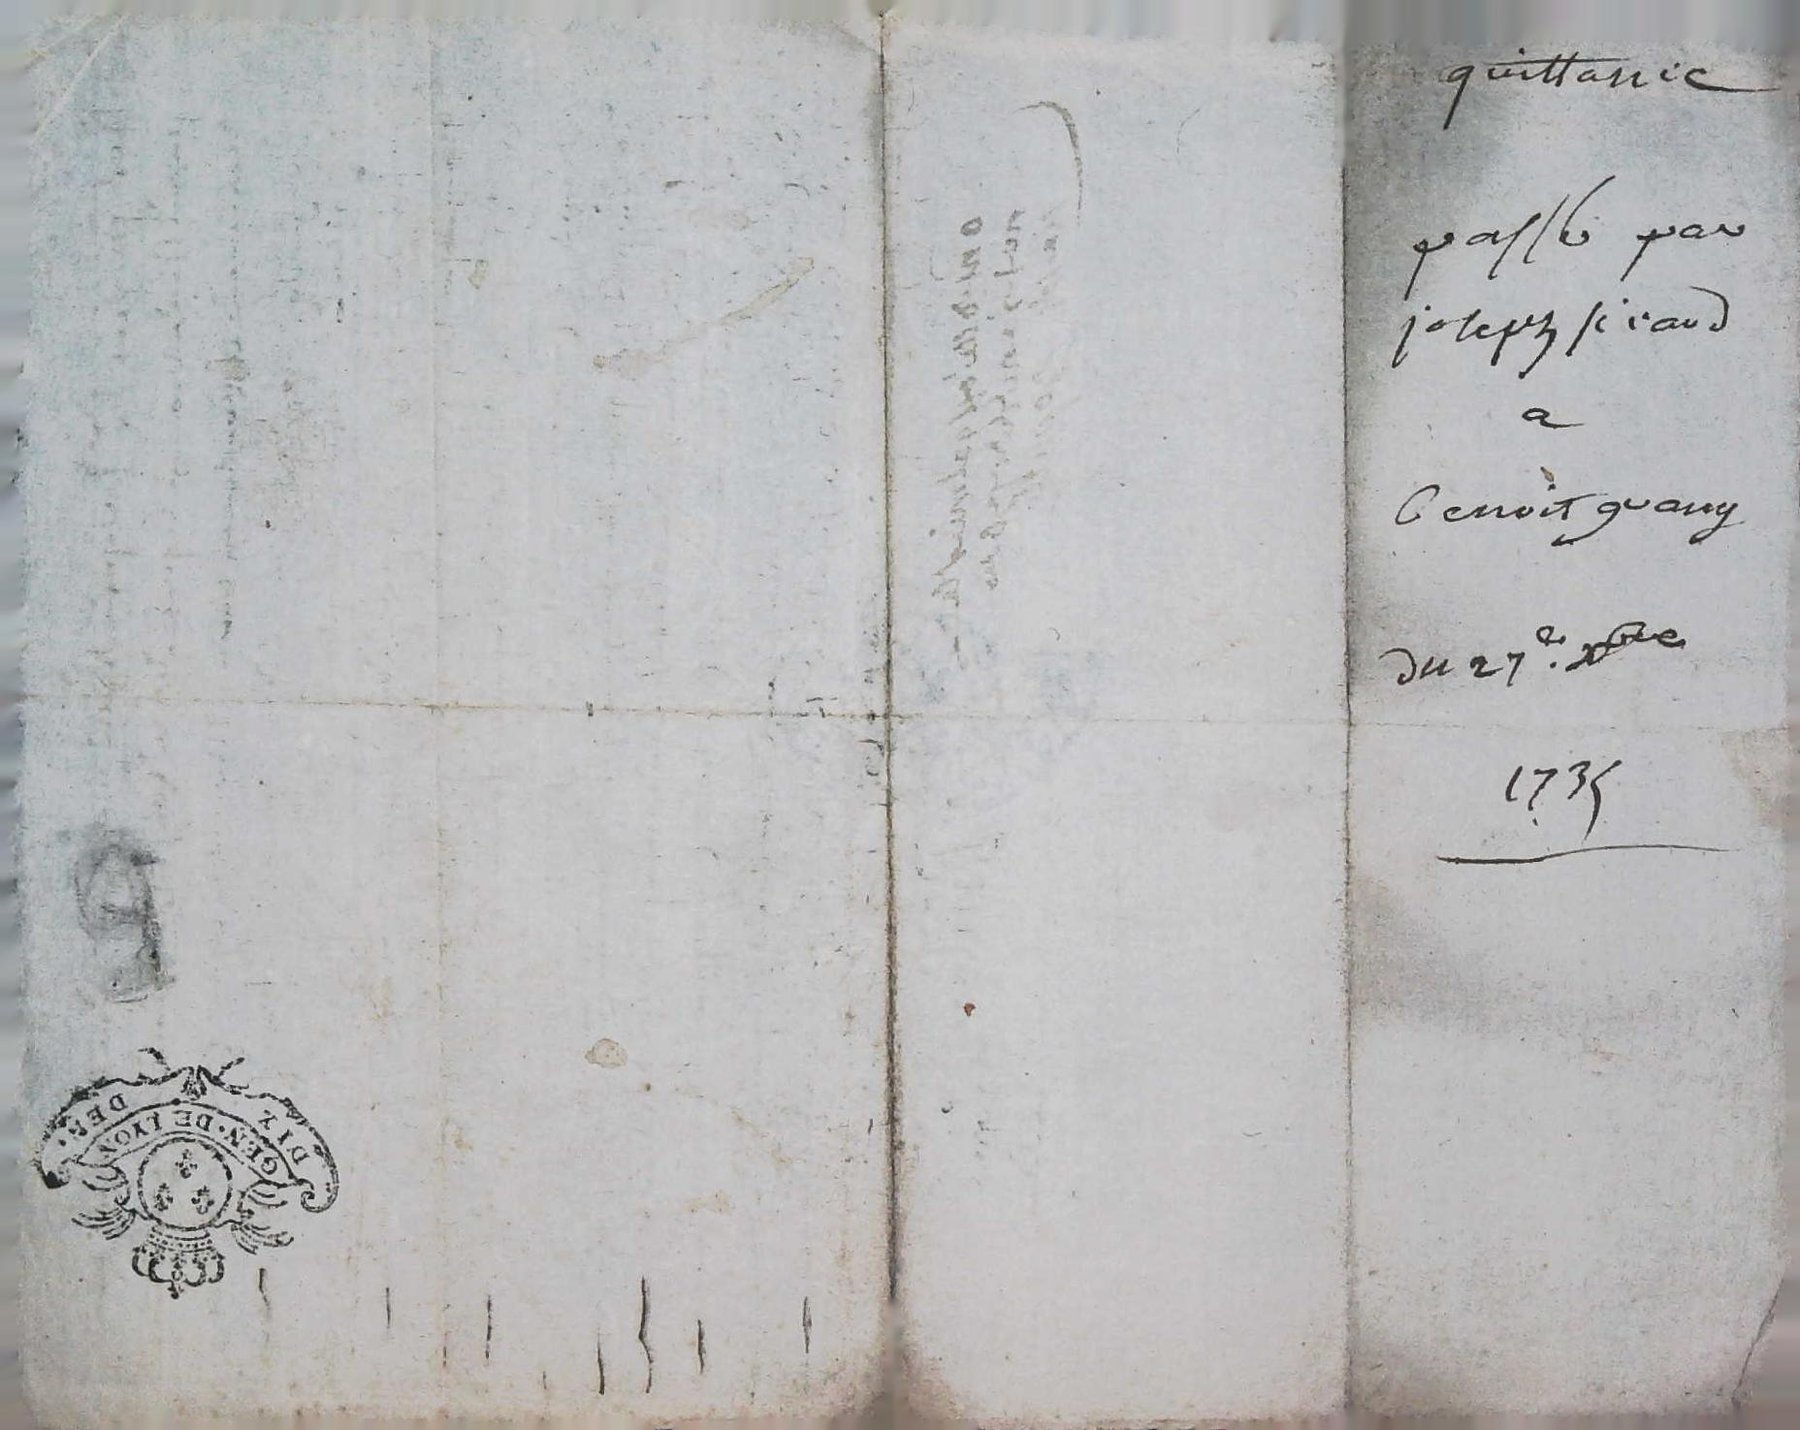 quittance
passé par
joseph siraud
a
Benoit grany
du 27e. xbre
1735
DIX DER.
GEN. DE LYON